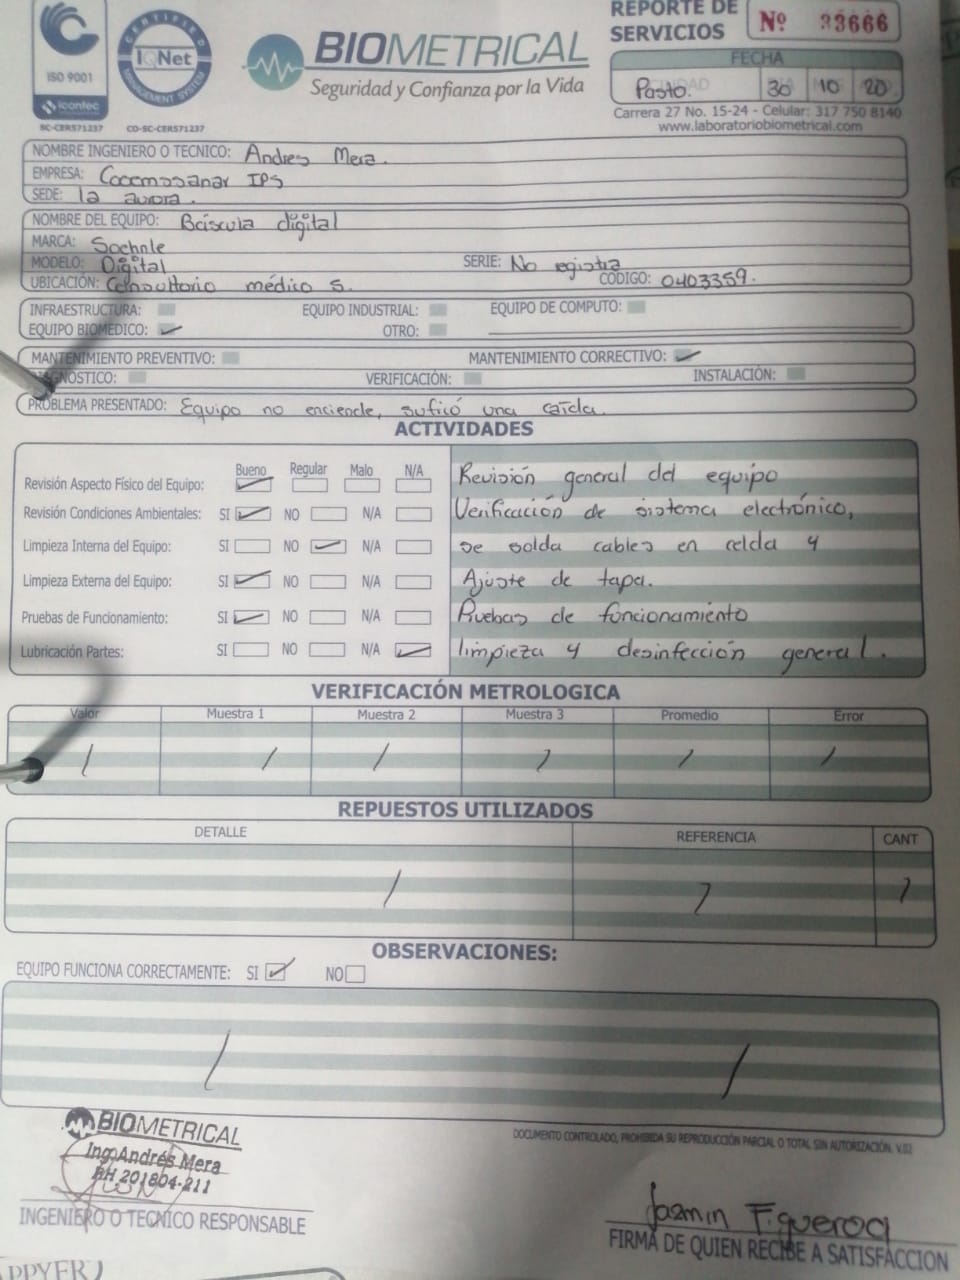 REPORTE DE
SERVICIOS
Nº 33666
ISO 9001
icontec
SC-CER571237
CERTIFIED
IQNet
MANAGEMENT SYSTEM
CO-SC-CER571237
BIOMETRICAL
Seguridad y Confianza por la Vida
FECHA
Pasto. 30 10 20
Carrera 27 No. 15-24 - Celular: 317 750 8140
www.laboratoriobiometrical.com
NOMBRE INGENIERO O TECNICO: Andres Mera.
EMPRESA: Cocemosanar IPS
SEDE: la aurora.
NOMBRE DEL EQUIPO: Báscula digital
MARCA: Soehnle
MODELO: Digital SERIE: No registra
UBICACIÓN: Consultorio médico 5. CÓDIGO: 0403359.
INFRAESTRUCTURA: EQUIPO INDUSTRIAL: EQUIPO DE COMPUTO:
EQUIPO BIOMÉDICO: ✓ OTRO:
MANTENIMIENTO PREVENTIVO: MANTENIMIENTO CORRECTIVO: ✓
DIAGNOSTICO: VERIFICACIÓN: INSTALACIÓN:
PROBLEMA PRESENTADO: Equipo no enciende, sufrió una caída.
ACTIVIDADES
Bueno Regular Malo N/A
Revisión Aspecto Físico del Equipo: ✓
Revisión Condiciones Ambientales: SI ✓ NO N/A
Limpieza Interna del Equipo: SI NO ✓ N/A
Limpieza Externa del Equipo: SI ✓ NO N/A
Pruebas de Funcionamiento: SI ✓ NO N/A
Lubricación Partes: SI NO N/A ✓
Revisión general del equipo
Verificación de sistema electrónico,
se solda cables en celda y
Ajuste de tapa.
Pruebas de funcionamiento
limpieza y desinfección general.
VERIFICACIÓN METROLOGICA
Valor Muestra 1 Muestra 2 Muestra 3 Promedio Error
/ / / / / /
REPUESTOS UTILIZADOS
DETALLE REFERENCIA CANT
/ / /
OBSERVACIONES:
EQUIPO FUNCIONA CORRECTAMENTE: SI ✓ NO
/ /
DOCUMENTO CONTROLADO, PROHIBIDA SU REPRODUCCIÓN PARCIAL O TOTAL SIN AUTORIZACIÓN. V.02
BIOMETRICAL
Ing. Andrés Mera
RH 201804-211
INGENIERO O TECNICO RESPONSABLE
Jazmin Figueroa
FIRMA DE QUIEN RECIBE A SATISFACCION